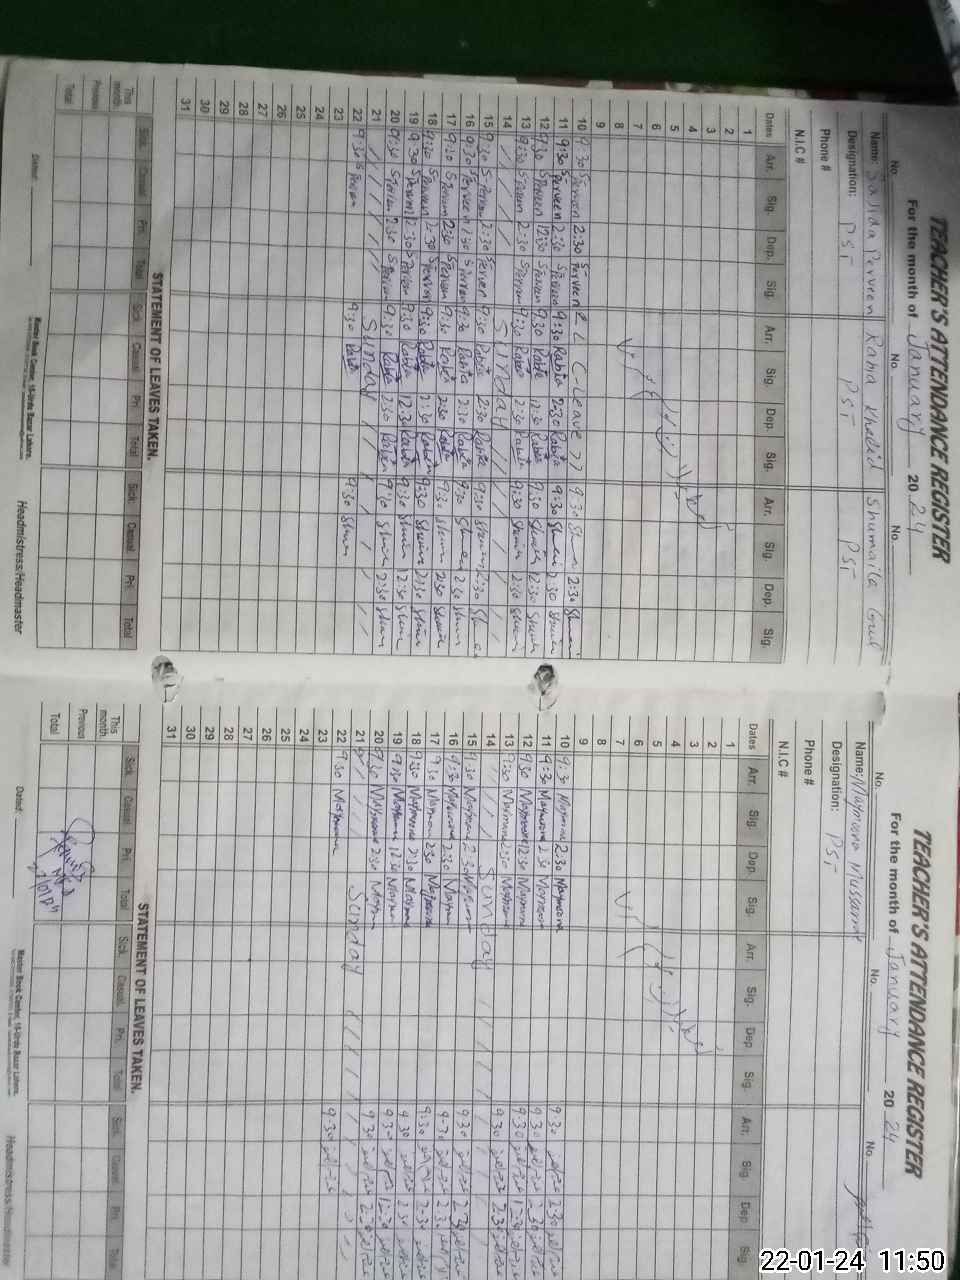 TEACHER'S ATTENDANCE REGISTER
For the month of January 2024
No. No. No.
Name: Sajida Perveen Rabia Khalid Shumaila Gul
Designation: PST PST PST
Phone #
N.I.C #
Dates Arr. Sig. Dep. Sig. Arr. Sig. Dep. Sig. Arr. Sig. Dep. Sig.
1
2
3
4
5
6
7
8
9
10 9:30 S Perveen 2:30 S Perveen C-Leave 9:30 2:30
11 9:30 S Perveen 2:30 S Perveen 9:30 Rabia 2:30 Rabia 9:30 2:30
12 9:30 S Perveen 12:30 S Perveen 9:30 Rabia 12:30 Rabia 9:30 12:30
13 9:30 S Perveen 2:30 S Perveen 9:30 Rabia 2:30 Rabia 9:30 2:30
14 Sunday
15 9:30 S Perveen 2:30 S Perveen 9:30 Rabia 2:30 Rabia 9:30 2:30
16 9:30 S Perveen 2:30 S Perveen 9:30 Rabia 2:30 Rabia 9:30 2:30
17 9:30 S Perveen 2:30 S Perveen 9:30 Rabia 2:30 Rabia 9:30 2:30
18 9:30 S Perveen 2:30 S Perveen 9:30 Rabia 2:30 Rabia 9:30 2:30
19 9:30 S Perveen 12:30 S Perveen 9:30 Rabia 12:30 Rabia 9:30 12:30
20 9:30 S Perveen 2:30 S Perveen 9:30 Rabia 2:30 Rabia 9:30 2:30
21 Sunday
22 9:30 S Perveen 9:30 Rabia 9:30
23
24
25
26
27
28
29
30
31
STATEMENT OF LEAVES TAKEN.
Sick. Casual Pri. Total Sick. Casual Pri. Total Sick. Casual Pri. Total
This month.
Previous
Total
Dated:
Master Book Center, 15-Urdu Bazar Lahore.
Headmistress/Headmaster
TEACHER'S ATTENDANCE REGISTER
For the month of January 2024
No. No. No.
Name: Maymoona Mussarrat
Designation: PST
Phone #
N.I.C #
Dates Arr. Sig. Dep. Sig. Arr. Sig. Dep Sig. Arr. Sig. Dep Sig.
1
2
3
4
5
6
7
8
9
10 9:30 Maymoona 2:30 Maymoona 9:30 2:30
11 9:30 Maymoona 2:30 Maymoona 9:30 2:30
12 9:30 Maymoona 12:30 Maymoona 9:30 12:30
13 9:30 Maymoona 2:30 Maymoona 9:30 2:30
14 Sunday
15 9:30 Maymoona 2:30 Maymoona 9:30 2:30
16 9:30 Maymoona 2:30 Maymoona 9:30 2:30
17 9:30 Maymoona 2:30 Maymoona 9:30 2:30
18 9:30 Maymoona 2:30 Maymoona 9:30 2:30
19 9:30 Maymoona 12:30 Maymoona 9:30 12:30
20 9:30 Maymoona 2:30 Maymoona 9:30 2:30
21 Sunday
22 9:30 Maymoona 9:30
23
24
25
26
27
28
29
30
31
STATEMENT OF LEAVES TAKEN.
Sick Casual Pri. Total Sick. Casual Pri. Total Sick. Casual Pri. Total
This month.
Previous
Total
Dated:
Master Book Center, 15-Urdu Bazar Lahore.
Headmistress/Headmaster
22-01-24 11:50